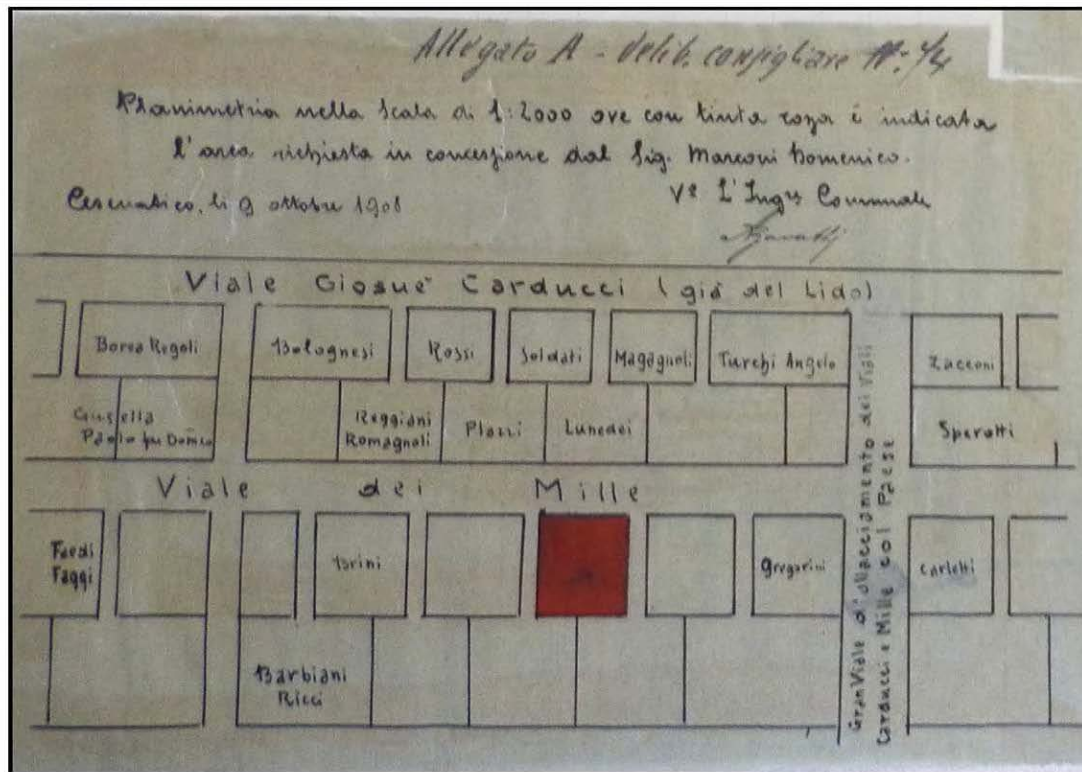 Allegato A - Delib. consigliare N: 4/4
Planimetria nella Scala di 1:2000 ove con tinta rossa è indicata
l'area richiesta in concessione dal Sig. Marconi Domenico.
Cesenatico, li 9 ottobre 1908
Vº L'Ingre Comunale
Viale Giosuè Carducci (già del Lido)
Borea Regoli
Bolognesi
Rossi
Soldati
Magagnoli
Turchi Angelo
Zacconi
Gusella
Paolo fu Domco
Reggiani
Romagnoli
Plazzi
Lunedei
Sperotti
Viale dei Mille
Faedi
Faggi
Torini
Gregorini
Carletti
Barbiani
Ricci
Gran Viale d'allacciamento dei Viali
Carducci e Mille col Paese